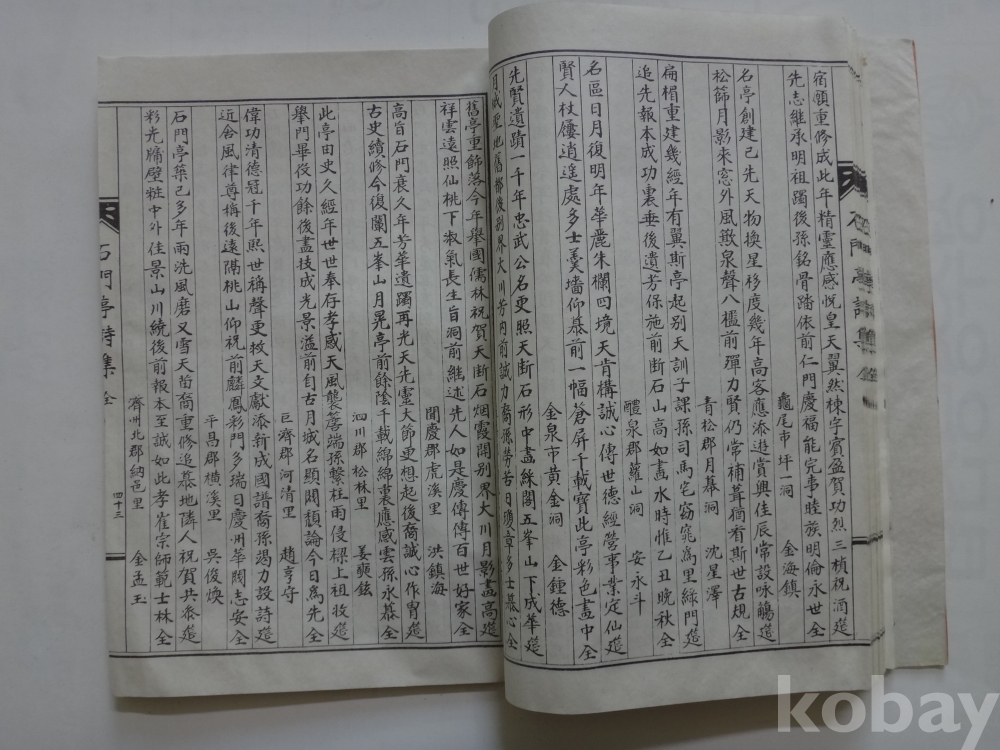 宿願重修成此年精靈應感悅皇天翼然棟宇賓盈賀功烈三楨祝酒筵
先志継承明祖躅後孫銘骨踏依前仁門慶福能完事睦族明倫永世全
龜尾市坪一洞 金海鎮
名亭創建已先天物換星移度幾年高客應添遊賞興佳辰常設咏觴筵
松篩月影朱窓外風歕泉聲八檻前殫力賢仍常補葺猶看斯世古規全
青松郡月幕洞 沈星澤
扁楣重建幾經年有翼斯亭起別天訓子課孫司馬宅窈窕為里綠門筵
追先報本成功裏垂後遺芳保施前断石山高如畵水時惟乙丑晚秋全
醴泉郡蘿山洞 安永斗
名區日月復明年華麗朱欄四境天肯構誠心傳世德經營事業定仙筵
賢人杖屨逍遙處多士羹墻仰慕前一幅倉屏千載寶此亭彩色畵中全
金泉市黄金洞 金鍾德
先賢遺蹟一千年忠武公名更照天断石形中畵綠閣五峯山下成華筵
舊亭重飾落今年舉國儒林祝賀天断石烟霞開別界大川月影畵高筵
祥雲遠照仙桃下淑氣長生旨洞前継述先人如是慶傳傳百世好家全
聞慶郡虎溪里 洪鎮海
高旨石門衰久年芳華遺躅再光天先霊大節更想起後裔誠心作胄筵
古史續修今復闌五峯山月晃亭前餘蔭千載綿綿裏應感雲孫永慕全
泗川郡松林里 姜奭鉉
此亭由史久經年世世奉存孝感天風襲蒼端孫繋柱雨侵樑上祖收筵
舉門畢役功餘後畵技成光景溢前自古月城名顯閥頽論今日為先全
巨濟郡河清里 趙亨守
偉功清德冠千年熙世稱聲更牧天文獻添新成國譜裔孫竭力設詩筵
近侖風律尊梅後遠隔桃山仰祝前麟鳳彩門多瑞日慶州華閥志安全
平昌郡横溪里 吳俊煥
石門亭築已多年雨洗風磨又雪天哲裔重修追慕地隣人祝賀共叅筵
彩光牖壁粧中外佳景山川繞後前報本至誠如此孝崔宗師範士林全
濟州北郡納邑里 金孟玉
石門亭詩集 全
四十三
kobay